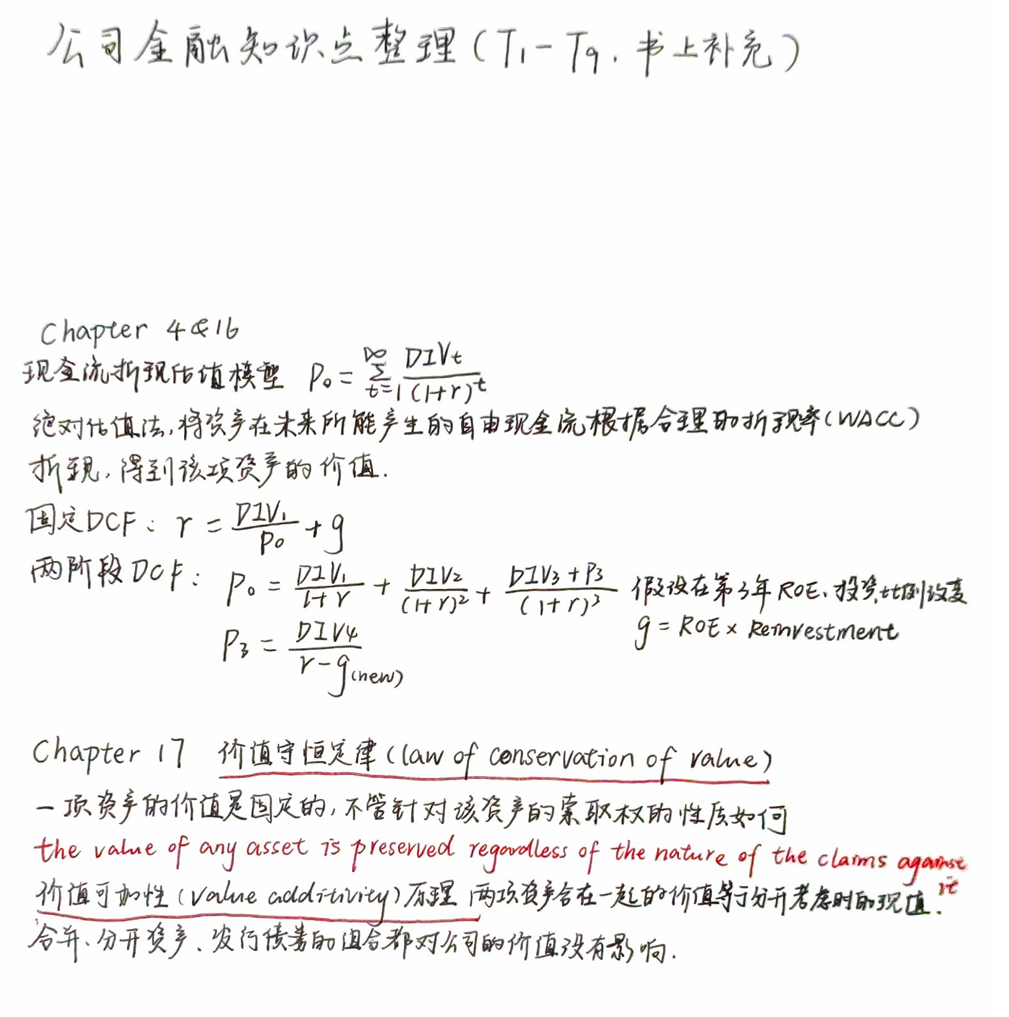 公司金融知识点整理(T1-T9.书上补充)
Chapter 4&16
现金流折现估值模型 P₀ = ∑_{t=1}^{∞} DIVt/(1+r)^t
绝对估值法,将资产在未来所能产生的自由现金流根据合理的折现率(WACC)
折现,得到该项资产的价值.
固定DCF: r = DIV₁/P₀ + g
两阶段DCF: P₀ = DIV₁/(1+r) + DIV₂/(1+r)² + (DIV₃+P₃)/(1+r)³ 假设在第3年ROE、投资比例改变
g = ROE × Reinvestment
P₃ = DIV₄/(r-g(new))
Chapter 17 价值守恒定律(law of conservation of value)
一项资产的价值是固定的,不管针对该资产的索取权的性质如何
the value of any asset is preserved regardless of the nature of the claims against it
价值可加性(value additivity)原理 两项资产合在一起的价值等于分开考虑时的现值.
合并、分开资产、发行债券的组合都对公司的价值没有影响.